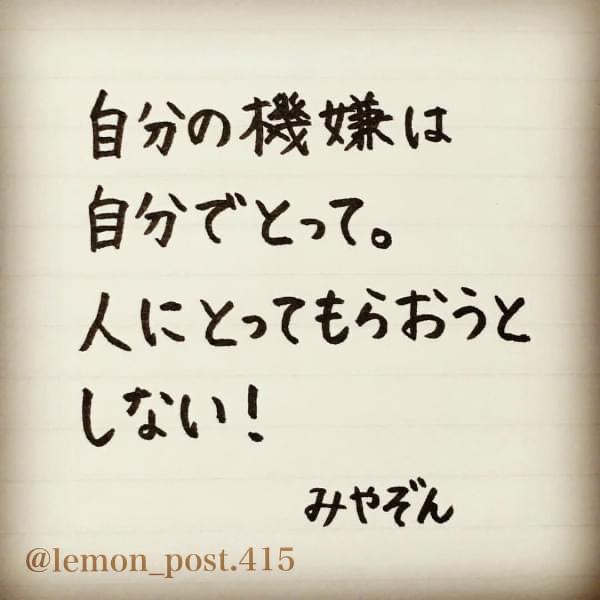 自分の機嫌は
自分でとって。
人にとってもらおうと
しない!
みやぞん
@lemon_post.415